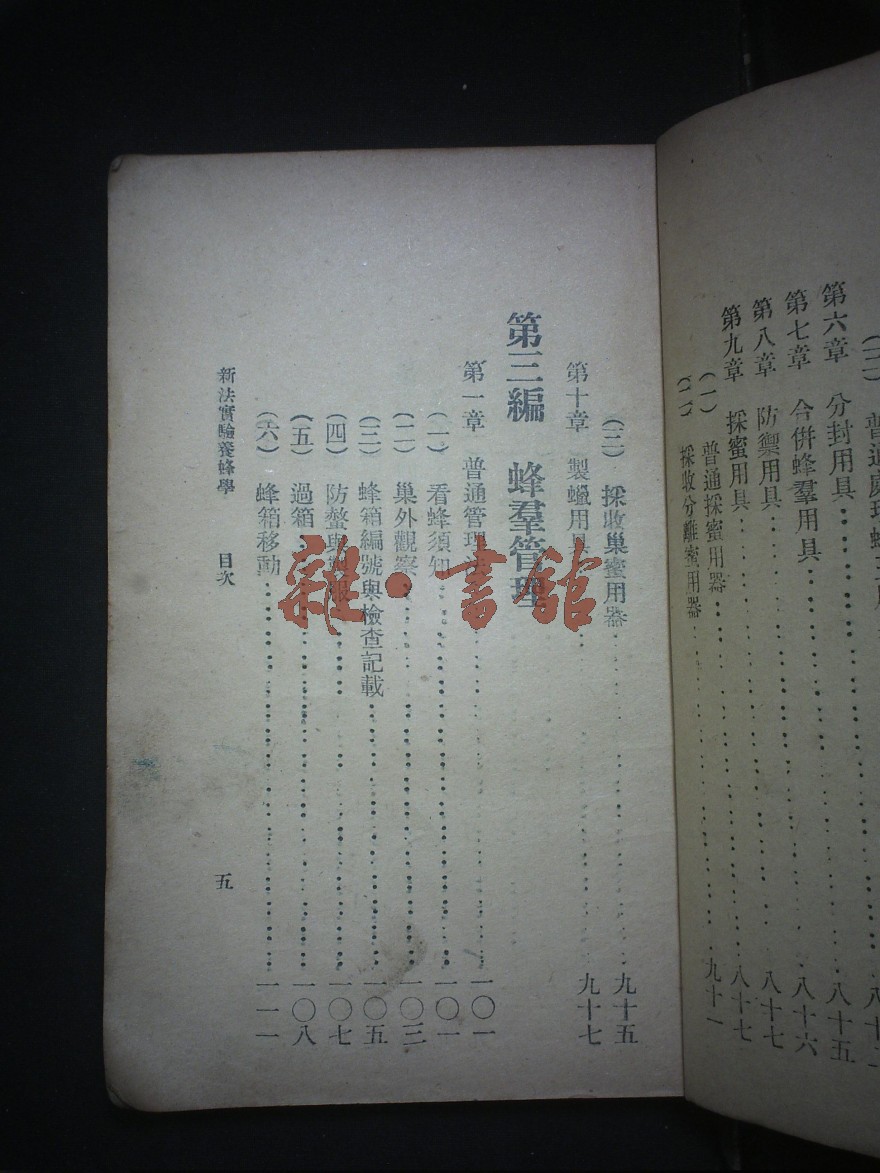 第六章 分封用具 八十五
第七章 合併蜂羣用具 八十六
第八章 防禦用具 八十七
第九章 採蜜用具 八十七
(一) 普通採蜜用器 九十一
(二) 採收分離蜜用器
(三) 採收巢蜜用器 九十五
第十章 製蠟用具 九十七
第三編 蜂羣管理
第一章 普通管理 一〇一
(一) 看蜂須知 一〇一
(二) 巢外觀察 一〇三
(三) 蜂箱編號與檢查記載 一〇五
(四) 防螫與 一〇七
(五) 過箱 一〇八
(六) 蜂箱移動 一一一
新法實驗養蜂學 目次 五
雜·書館